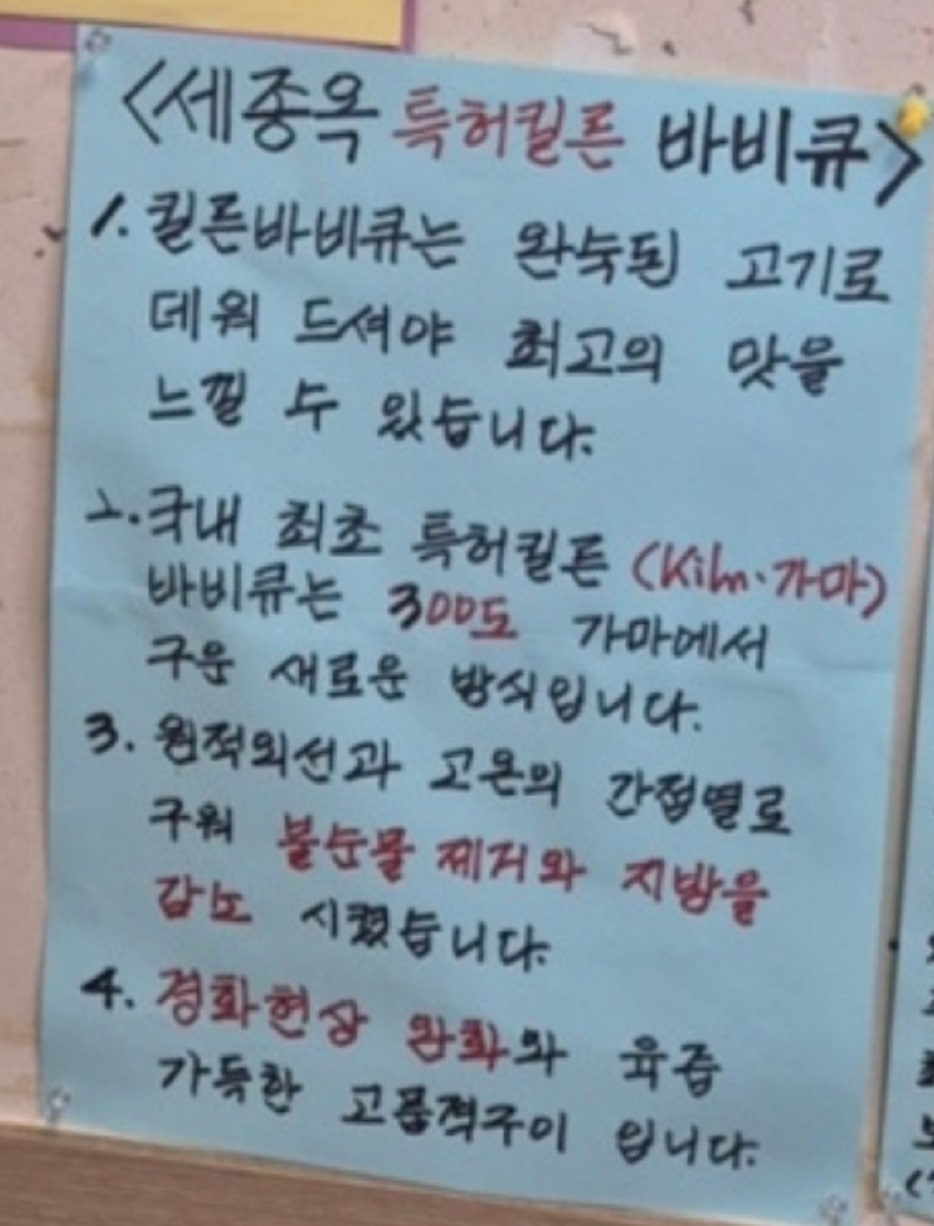 <세종옥 특허킬른 바비큐>
1. 킬른바비큐는 완숙된 고기로
데워 드셔야 최고의 맛을
느낄 수 있습니다.
2. 국내 최초 특허킬른 (Kiln·가마)
바비큐는 300도 가마에서
구운 새로운 방식입니다.
3. 원적외선과 고온의 간접열로
구워 불순물 제거와 지방을
감소 시켰습니다.
4. 경화현상 완화와 육즙
가득한 고품격구이 입니다.